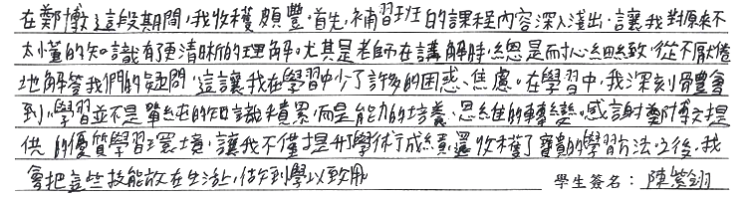 在鄭博這段期間,我收穫頗豐。首先,補習班的課程內容深入淺出,讓我對原來不
太懂的知識有了更清晰的理解。尤其是老師在講解時,總是耐心細緻,從不厭倦
地解答我們的疑問,這讓我在學習中少了許多的困惑、焦慮。在學習中,我深刻體會
到,學習並不是單純的知識積累,而是能力的培養、思維的轉變。感謝鄭博文提
供 的優質學習環境,讓我不僅提升學術行成績,還收穫了寶貴的學習方法。之後,我
會把這些技能放在生活上,做到學以致用 學生簽名:陳紫翊